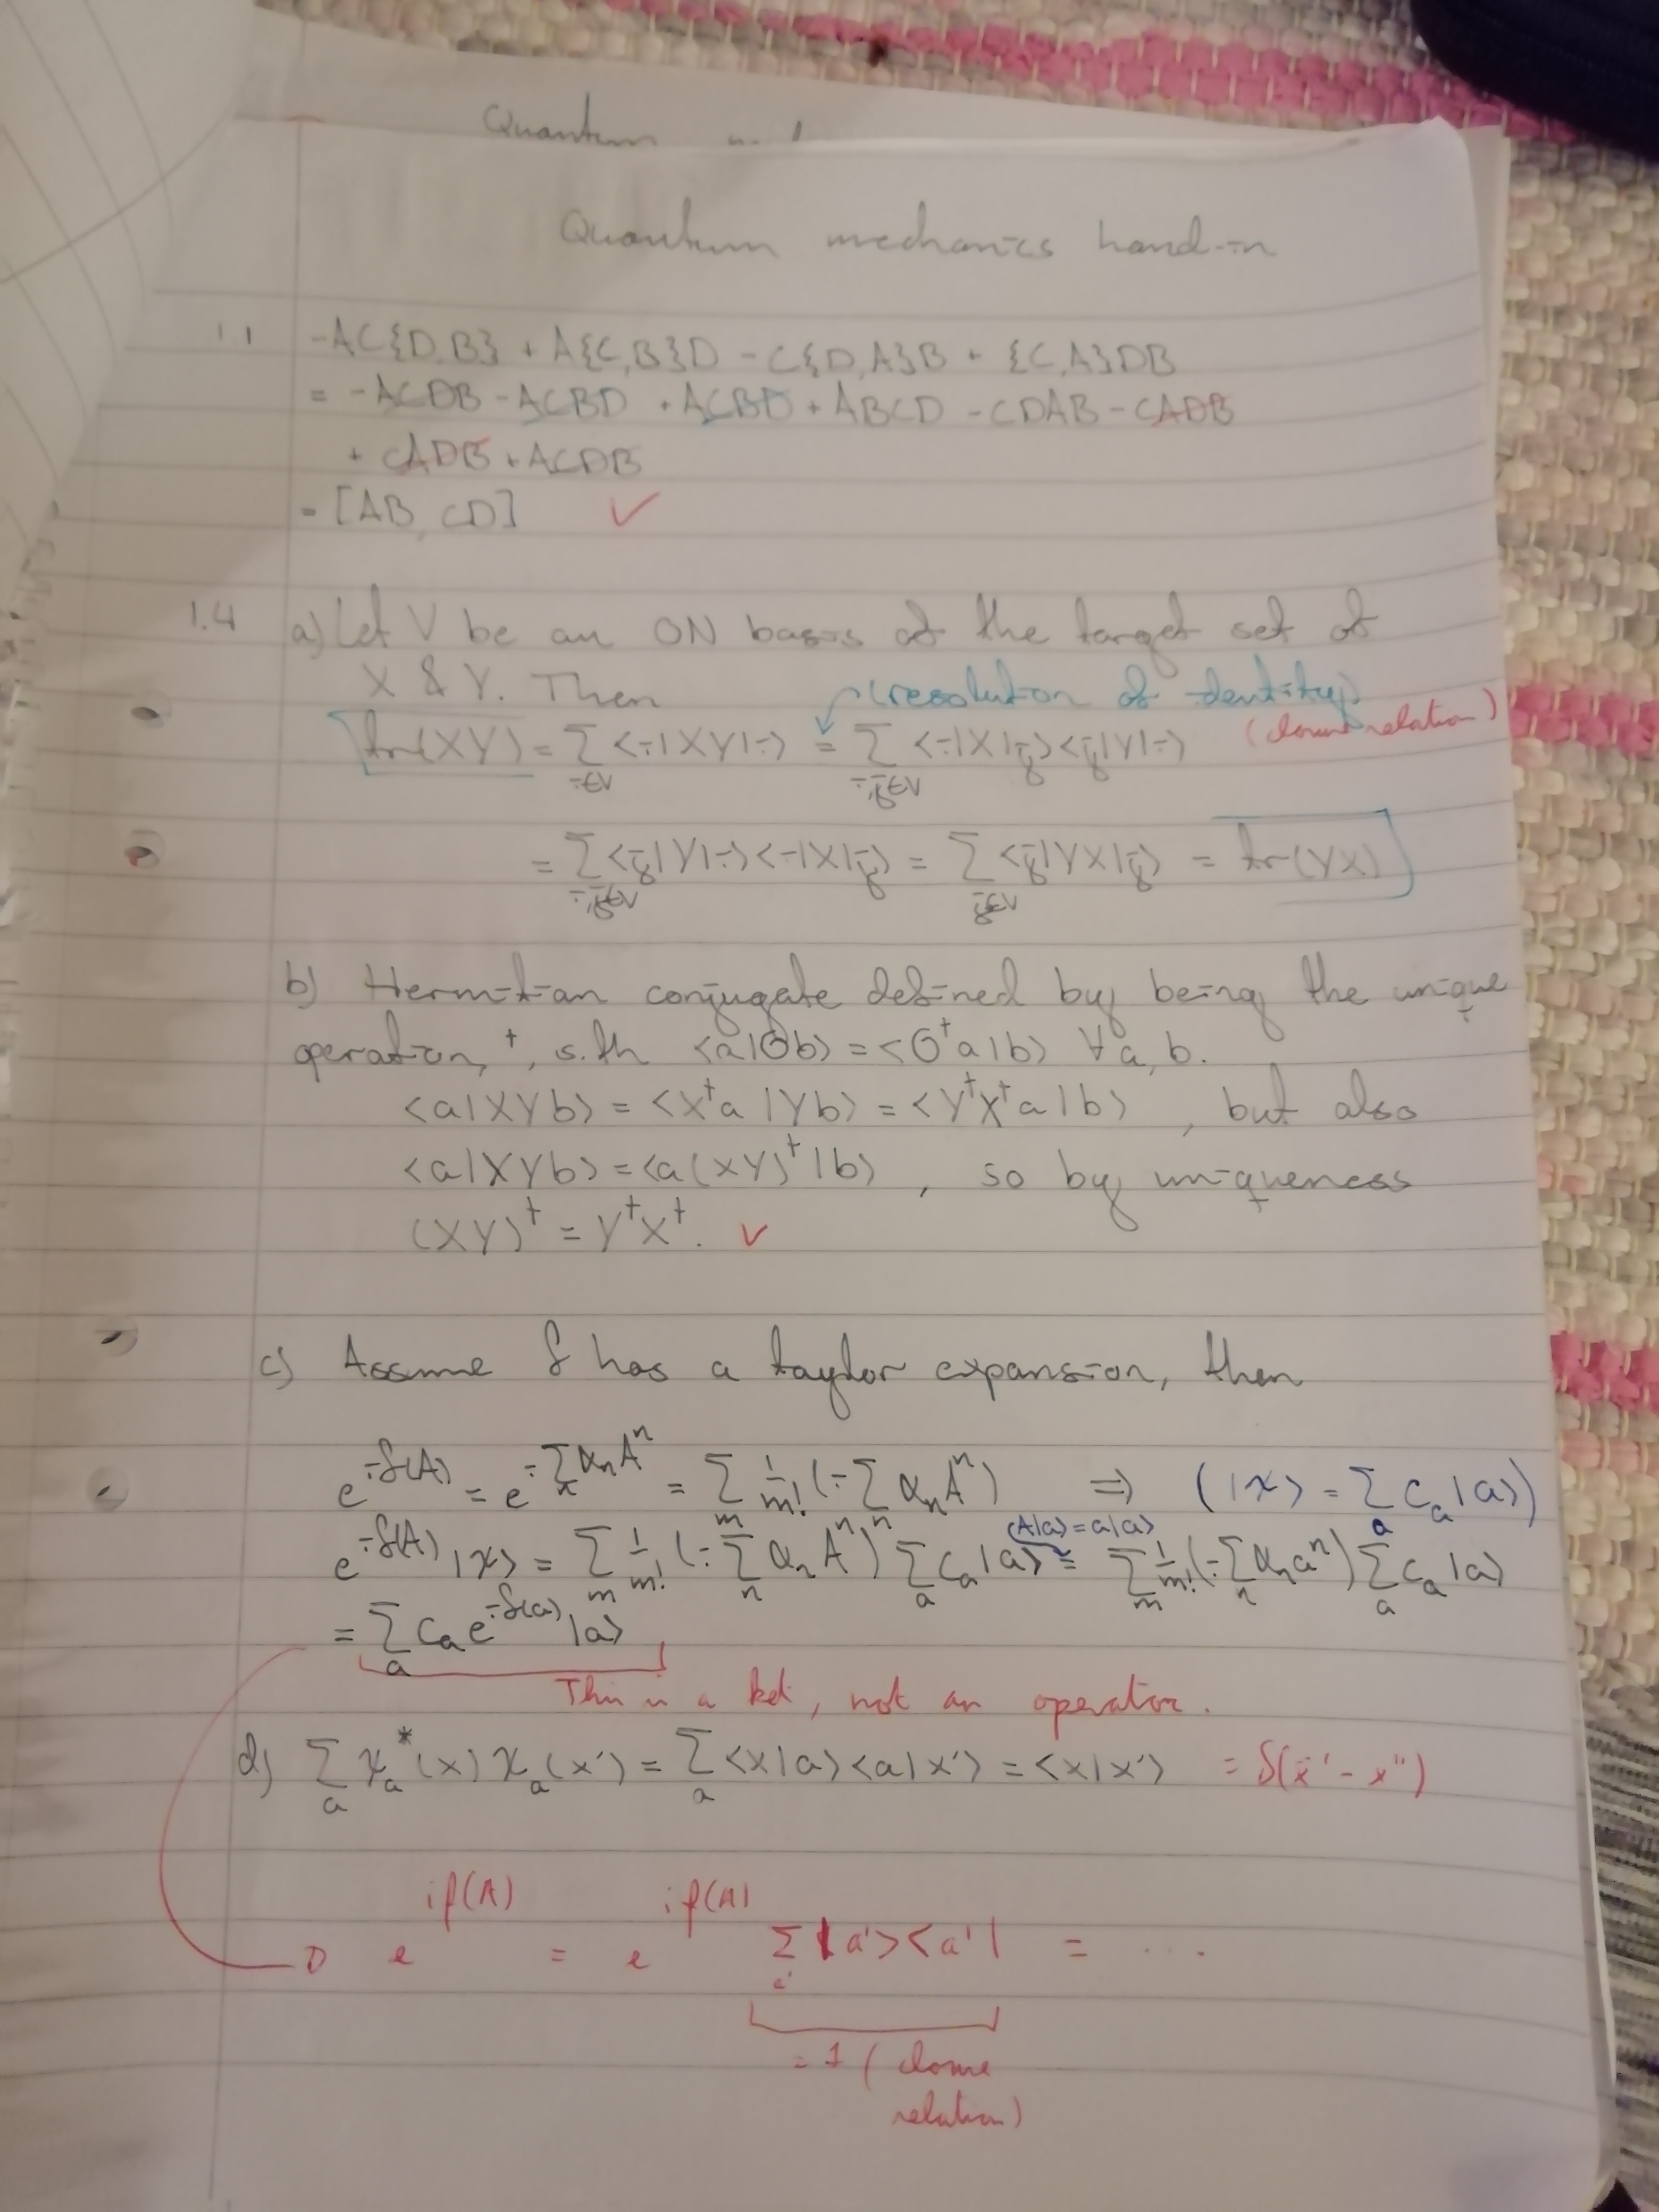 Quantum
Quantum mechanics hand-in
1.1 -AC{D,B} + A{C,B}D - C{D,A}B + {C,A}DB
= -ACDB - ACBD + ACBD + ABCD - CDAB - CADB
+ CADB + ACDB
= [AB, CD] ✓
1.4 a) Let V be an ON basis of the target set of
X & Y. Then
(resolution of identity)
tr(XY) = Σ_{i∈V} <i|XY|i> = Σ_{i,j∈V} <i|X|j><j|Y|i> (closure relation)
= Σ_{i,j∈V} <j|Y|i><i|X|j> = Σ_{j∈V} <j|YX|j> = tr(YX)
b) Hermitian conjugate defined by being the unique
operation, †, s.th <a|Θb> = <Θ†a|b> ∀ a, b.
<a|XYb> = <X†a|Yb> = <Y†X†a|b> , but also
<a|XYb> = <a(XY)†|b> , so by uniqueness
(XY)† = Y†X†. ✓
c) Assume f has a taylor expansion, then
e^{if(A)} = e^{iΣ_n α_n A^n} = Σ_m 1/m! (iΣ_n α_n A^n) ⇒ (|x> = Σ_a c_a |a>)
(A|a> = a|a>)
e^{if(A)} |x> = Σ_m 1/m! (iΣ_n α_n A^n) Σ_a c_a |a> = Σ_m 1/m! (iΣ_n α_n a^n) Σ_a c_a |a>
= Σ_a c_a e^{if(a)} |a>
This is a ket, not an operator.
d) Σ_a ψ_a^*(x) ψ_a(x') = Σ_a <x|a><a|x'> = <x|x'> = δ(x' - x'')
e^{if(A)} = e^{if(A)} Σ_{a'} |a'><a'| = ...
= 1 (closure
relation)